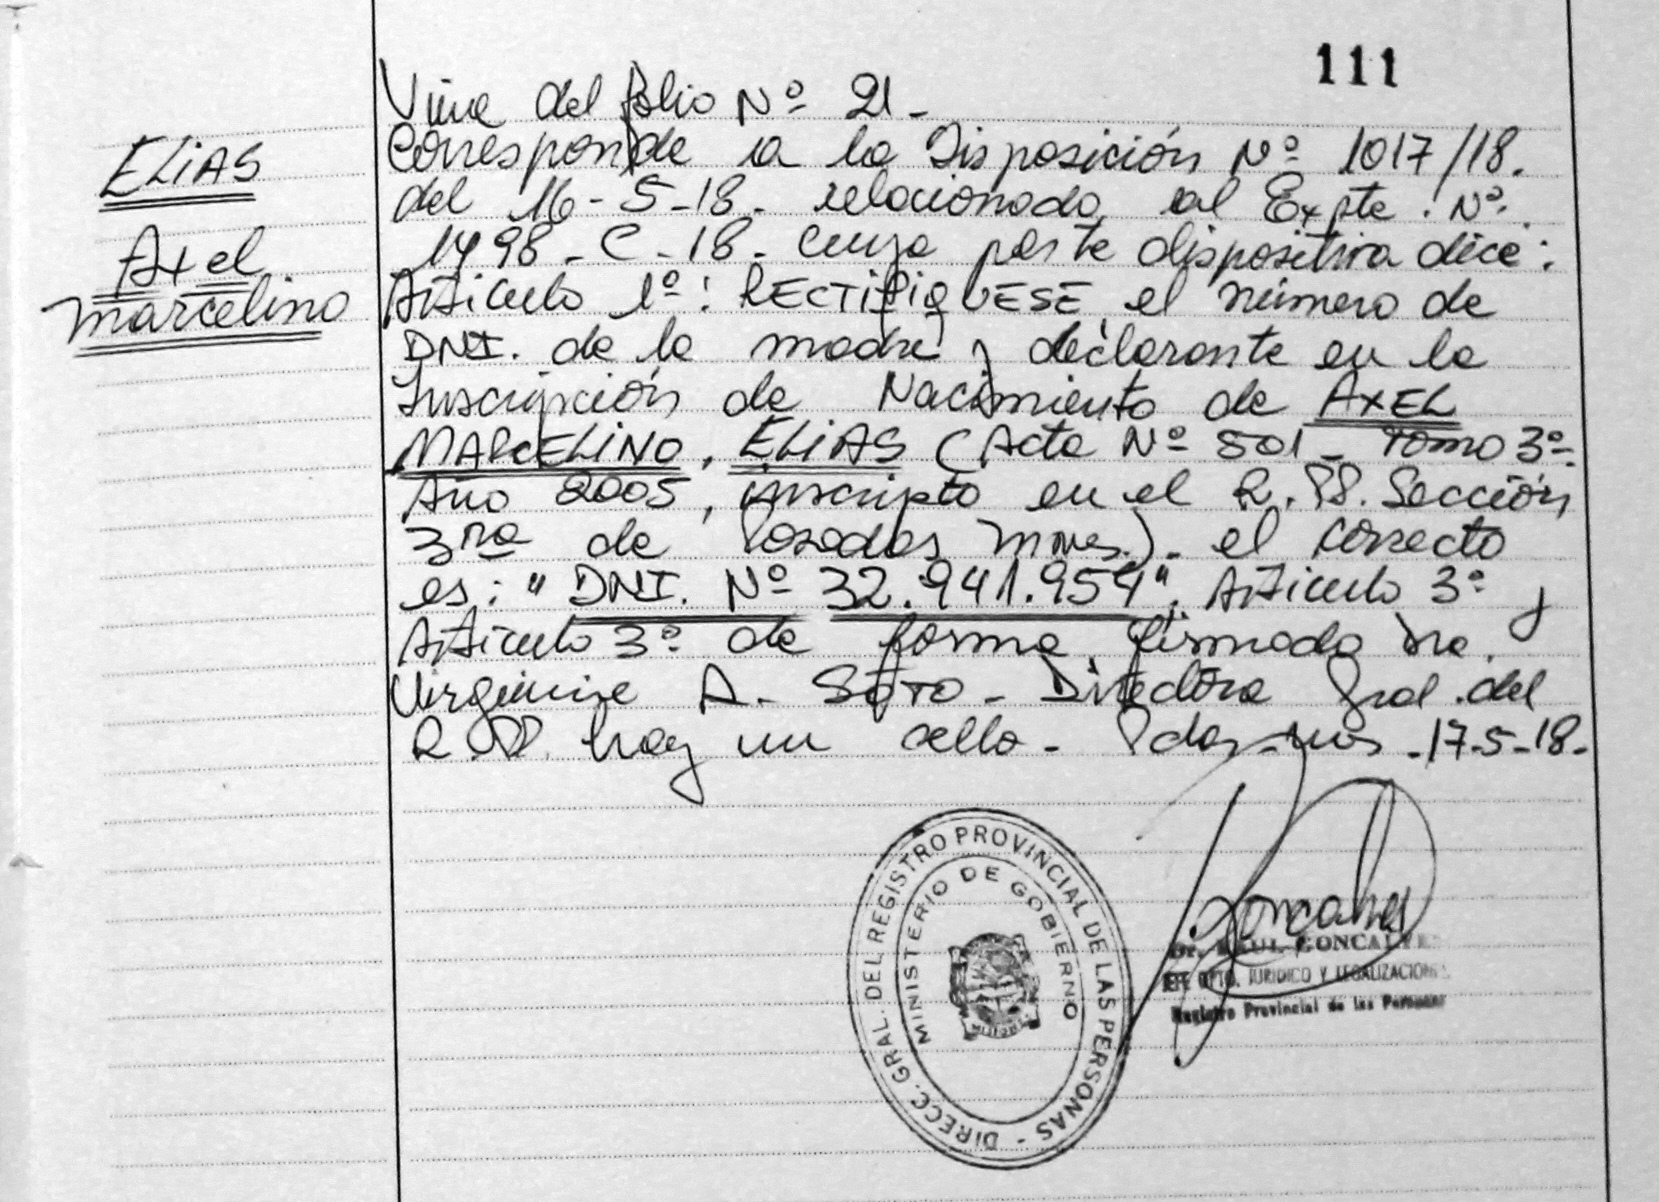 111
ELIAS
Axel
Marcelino
Viene del folio Nº 21.-
Corresponde a la Disposición Nº 1017/18.
del 16-5-18. relacionado al Expte. Nº
1498-C-18. cuya parte dispositiva dice:
Artículo 1º: RECTIFIQUESE el número de
DNI. de la madre y declarante en la
Inscripción de Nacimiento de AXEL
MARCELINO, ELIAS (Acta Nº 501 - Tomo 3º-
Año 2005, inscripto en el R.PP. Sección
3ra de Posadas Mnes.). el correcto
es: "DNI. Nº 32.941.954". Artículo 3º y
Artículo 3º de forma, firmado Dra.
Virginia A. SOTO - Directora Gral. del
R.PP. hay un sello - Pdas-Mnes -17-5-18-
DIRECC. GRAL. DEL REGISTRO PROVINCIAL DE LAS PERSONAS -
MINISTERIO DE GOBIERNO
MISIONES
Goncalves
Dr. RAUL GONCALVES
JEFE DPTO. JURIDICO Y LEGALIZACIONES
Registro Provincial de las Personas